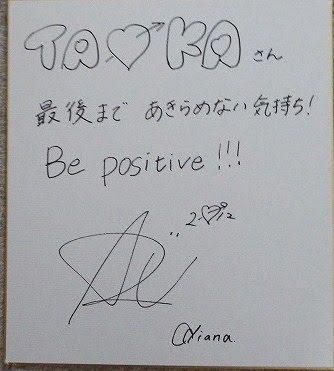 TA♡KAさん
最後まで あきらめない気持ち!
Be positive!!!